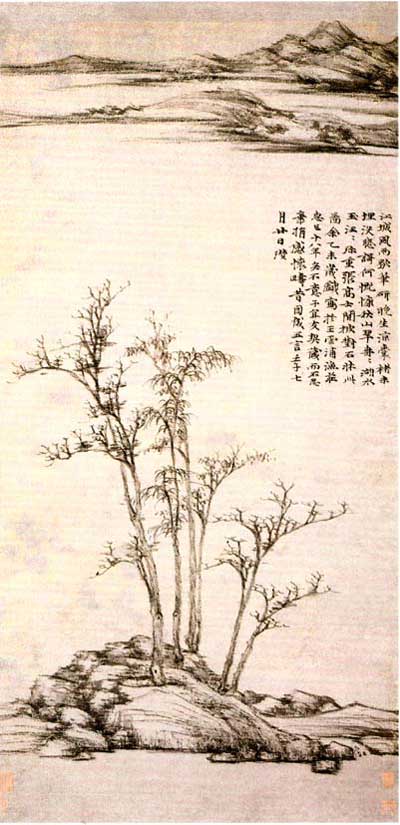 江城風雨歇筆研晚生涼囊楮未
埋沒悲謌何慨慷秋山翠冉〻湖水
玉汪〻珍重張高士閒披對石牀此
圖余乙未歲戲寫於王雲浦漁莊
忽已十八年矣不意子宜友契藏而不忍
棄捐感懷疇昔因成五言壬子七
月廿日瓚